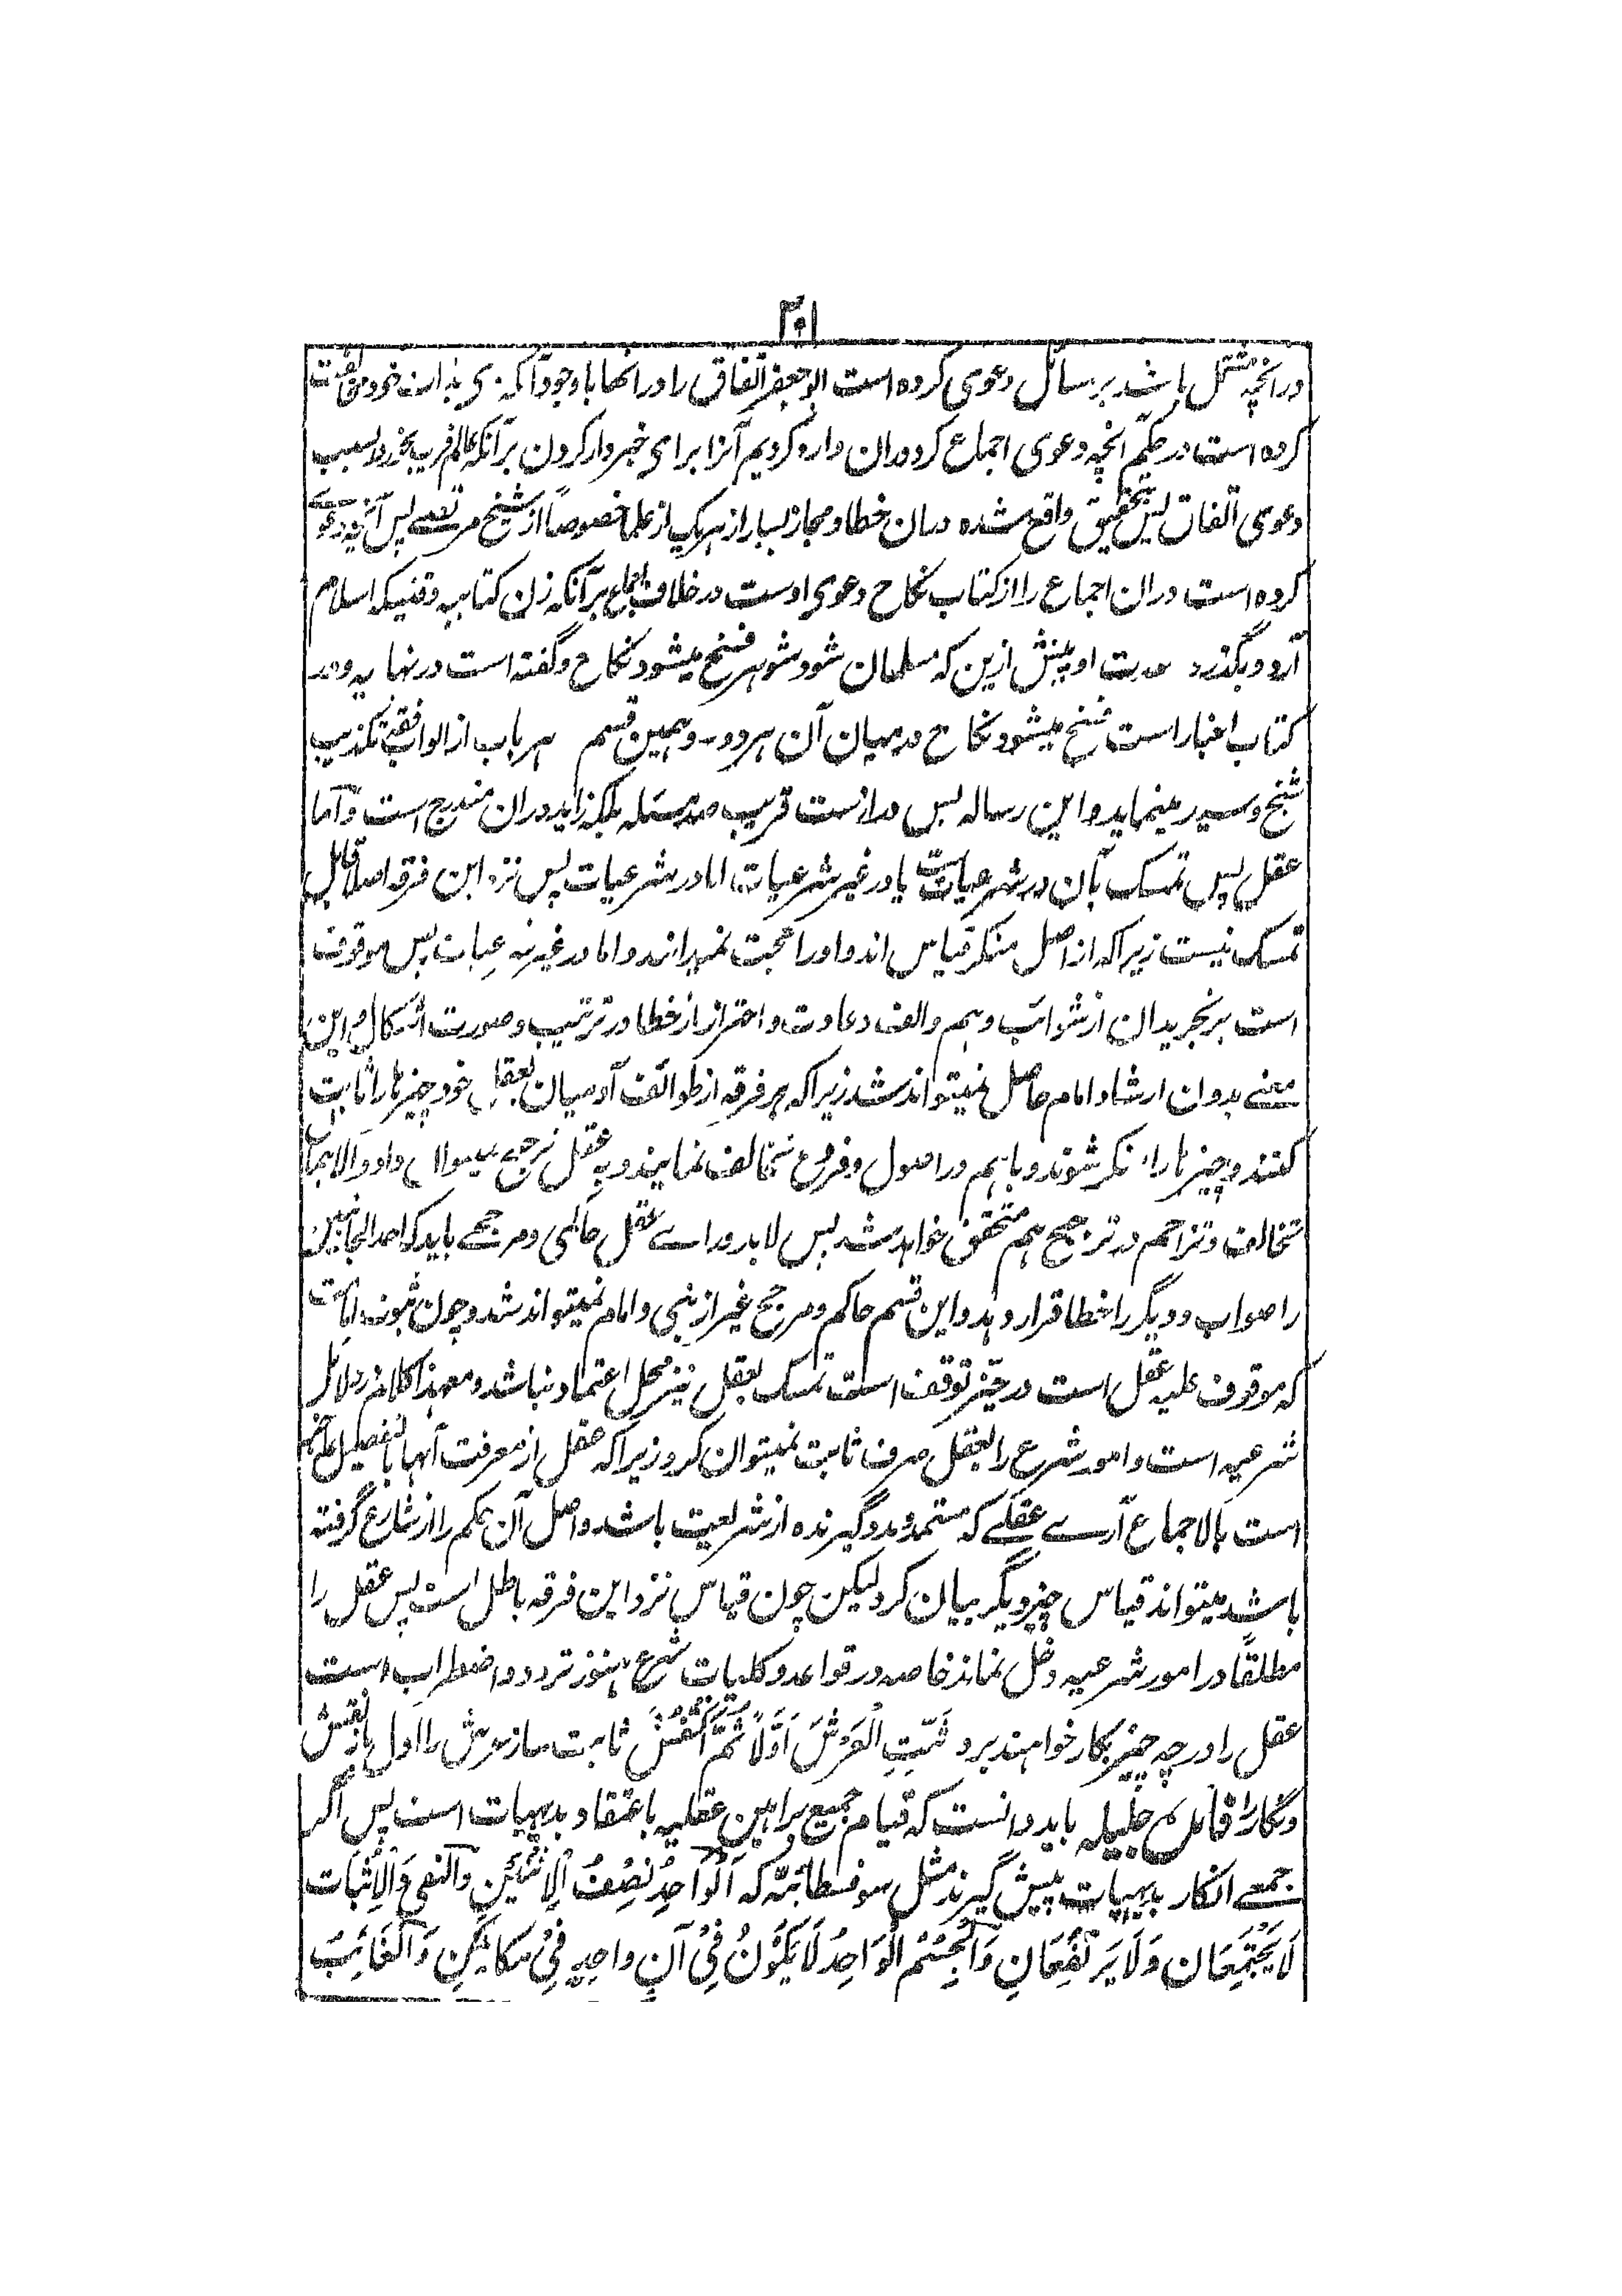 ۲۰۱
درانچه مشتمل باشد بر مسائل دعوی کرده است ابو جعفر اتفاق را در انها با وجود آنکه وی بذات خود مخالفت
کرده است در حکم انچه دعوی اجماع کرد دران وارد کردیم آنرا برای خبردار کردن بر آنکه عالم فریب نخورد بسبب
دعوی اتفاق پس بتحقیق واقع شده دران خطا و مجاز بسیار از هر یک از علما خصوصاً از شیخ مرتضے پس آنچه دعوے
کرده است دران اجماع را از کتاب نکاح دعوی اوست در خلاف اجماع بر آنکه زن کتابیه وقتیکه اسلام
آرد و بگذرد عدت او پیش ازین که مسلمان شود شوهر فسخ میشود نکاح و گفته است در نهایه و در
کتاب اخبار است فسخ میشود نکاح درمیان آن هر دو و همین قسم هر باب از ابواب فقه تکذیب
شیخ و سید مینماید و این رساله بس دراز است قریب صد مسئله بلکه زاید دران مندرج است و اما
عقل پس تمسک بآن در شرعیات است یا در غیر شرعیات اما در شرعیات پس نزد این فرقه اصلا قابل
تمسک نیست زیرا که از اصل منکر قیاس اند و او را حجت نمیدانند و اما در غیر شرعیات پس موقوف
است بر تجرید ان از شوائب وهم و الف و عادت و احتراز از خطا در ترتیب و صورت اشکال و این
معنے بدون ارشاد امام حاصل نمیتواند شد زیرا که هر فرقه از طوائف آدمیان بعقل خود چیزها را ثابت
کنند و چیزها را منکر شوند و باهم در اصول و فروع تخالف نمایند و به عقل ترجیح نمیتوان داد والا همان
تخالف و تزاحم در ترجیح هم متحقق خواهد شد پس لابد ورای عقل حاکمی و مرجحے باید که احد الجانبین
را صواب و دیگر را خطا قرار دهد و این قسم حاکم و مرجح غیر از نبی و امام نمیتواند شد و چون ثبوت امامت
که موقوف علیه عقل است در حیز توقف است تمسک بعقل نیز محل اعتماد نباشد و معهذا کلام در دلائل
شرعیه است و امور شرع را بعقل صرف ثابت نمیتوان کرد زیرا که عقل از معرفت آنها بالتفصیل عاجز
است بالاجماع آرے عقلے که مستمد و مدد گیرنده از شریعت باشد و اصل آن حکم را از شارع گرفته
باشد میتواند قیاس چیز دیگر بیان کرد لیکن چون قیاس نزد این فرقه باطل است پس عقل را
مطلقاً در امور شرعیه دخل نماند خاصه در قواعد و کلیات شرع هنوز تردد و اضطراب است
عقل را در چه چیز بکار خواهند برد ثَبِّتِ الْعَرْشَ اَوَّلًا ثُمَّ انْقُشْ ثابت ساز عرش را اول باز نقش
و نگار را فائده جلیله باید دانست که قیام جمیع براهین عقلیه باعتقاد بدیهیات است پس اگر
جمعے انکار بدیهیات پیش گیرند مثل سوفسطائیه که اَلْوَاحِدُ نِصْفُ الْاِثْنَیْنِ وَالنَّفْیُ وَالْاِثْبَاتُ
لَا یَجْتَمِعَانِ وَلَا یَرْتَفِعَانِ وَالْجِسْمُ الْوَاحِدُ لَا یَکُوْنُ فِیْ آنٍ وَاحِدٍ فِیْ مَکَانَیْنِ وَالْغَائِبُ